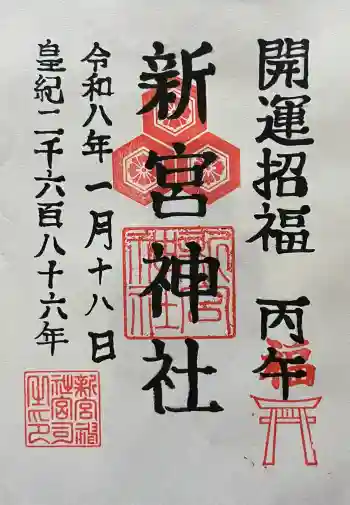 開運招福 丙午
福
新宮神社
新宮神社
令和八年一月十八日
皇紀二千六百八十六年